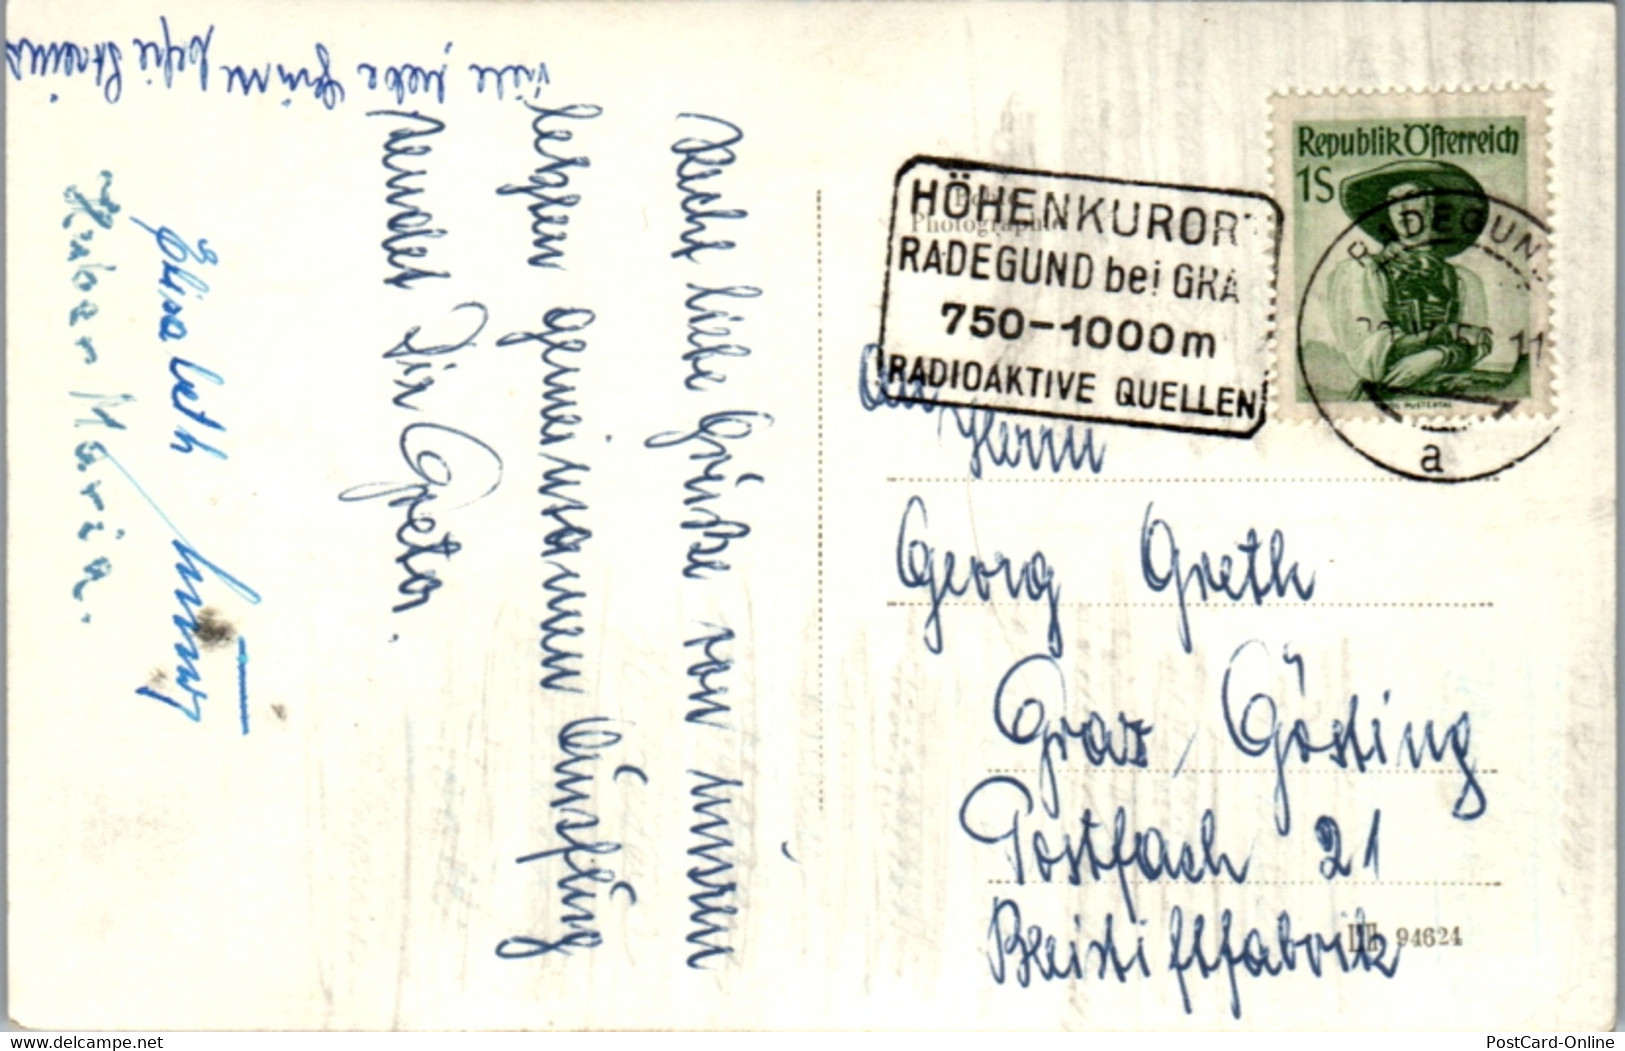 Recht liebe Grüße von unserem
letzten gemeinsamen Ausflug
sendet Dir Greta.
Viele liebe Grüße
Elisabeth
Huber Maria.
Republik Österreich
1S
HÖHENKURORT
RADEGUND bei GRA
750-1000m
RADIOAKTIVE QUELLEN
Photographie
RADEGUND
56 11
a
An
Herrn
Georg Greth
Graz, Gösting
Postfach 21
Bleistiftfabrik
94624
PostCard-Online
www.delcampe.net